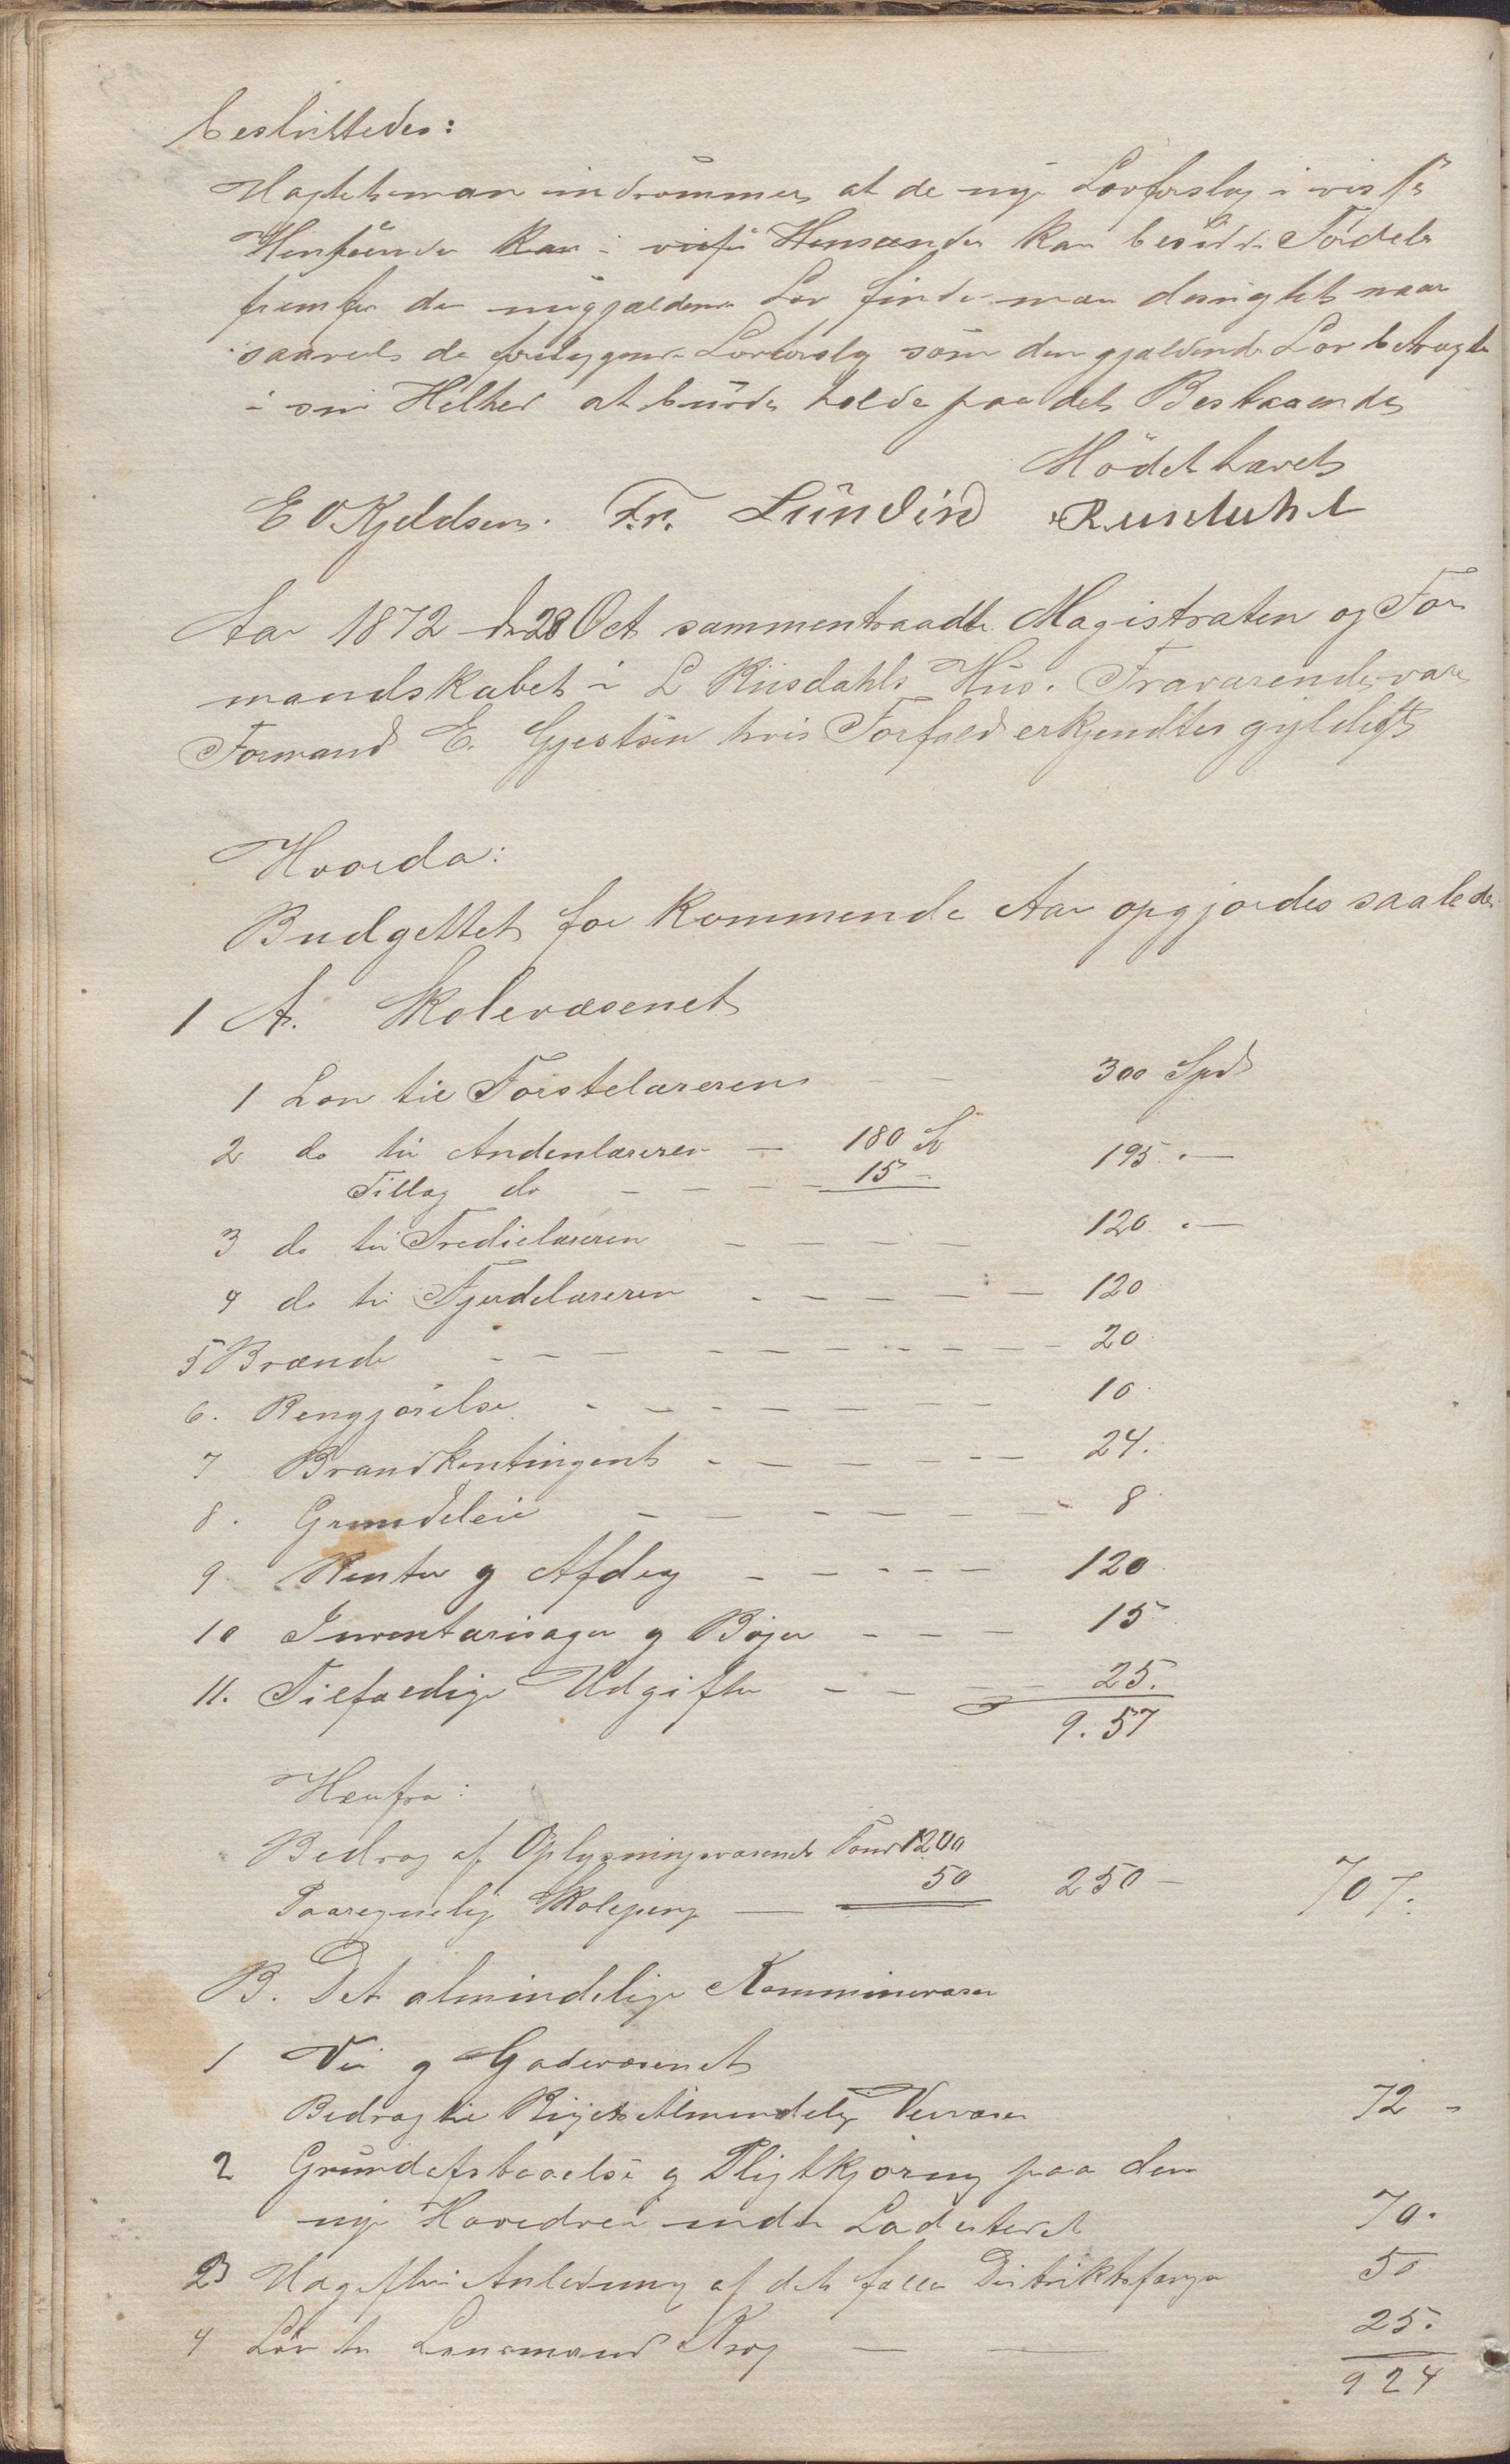 besluttedes:
Uagtet man indrømmer at de nye Lovforslag i visse
Henseender kan i visse Henseender kan besidde Fordele
fremfor den nugjældende Lov finder man desuagtet naar
saavel de foreliggende Lovforslag som den gjældende Lov betragtes
i sin Helhed at burde holde paa det Bestaaende
Mödet hævet
E O Kjeldsen. Fr. Lundin
Aar 1872 d 28 Oct sammentraadte Magistraten og For
mandskabet i L Riisdahls Hus. Fraværende var
Formand E. Gjestsen hvis Forfald erkjendtes gyldigt
Hvorda:
Budgettet for kommende Aar opgjordes saaledes
1 A. Skolevæsenet
1 Løn til Førstelæreren 300 Spd
2 do til Andenlæreren 180 Sp 195. —
Tillæg do 15 -
3 do til Tredielæreren 120. —
4 do til Fjerdelæreren 120
5 Brænde 20
6. Rengjörelse 10
7 Brandkontingent 24.
8. Grundeleie 8
9 Renter og Afdrag 120
10 Inventariesager og Bøger 15
11. Tilfældige Udgifter 25.
9.57
Herfra:
Bidrag af Oplysningsvæsenets Fond 200
Paaregnelig Skolepenge 50 250 - 707.
B. Det almindelige Kommunevæsen
1 Vei og Gadevæsenet
Bidrag til Rigets Almindelige Veivæsen 72 -
2 Grundafstaaelse og Pligtkjøring paa den
nye Hovedvei under Ladestedet 70.
3 Udgifter i Anledning af det fælles Distriktsfængsel 50
4 Løn til Lensmand Krog 25.
924